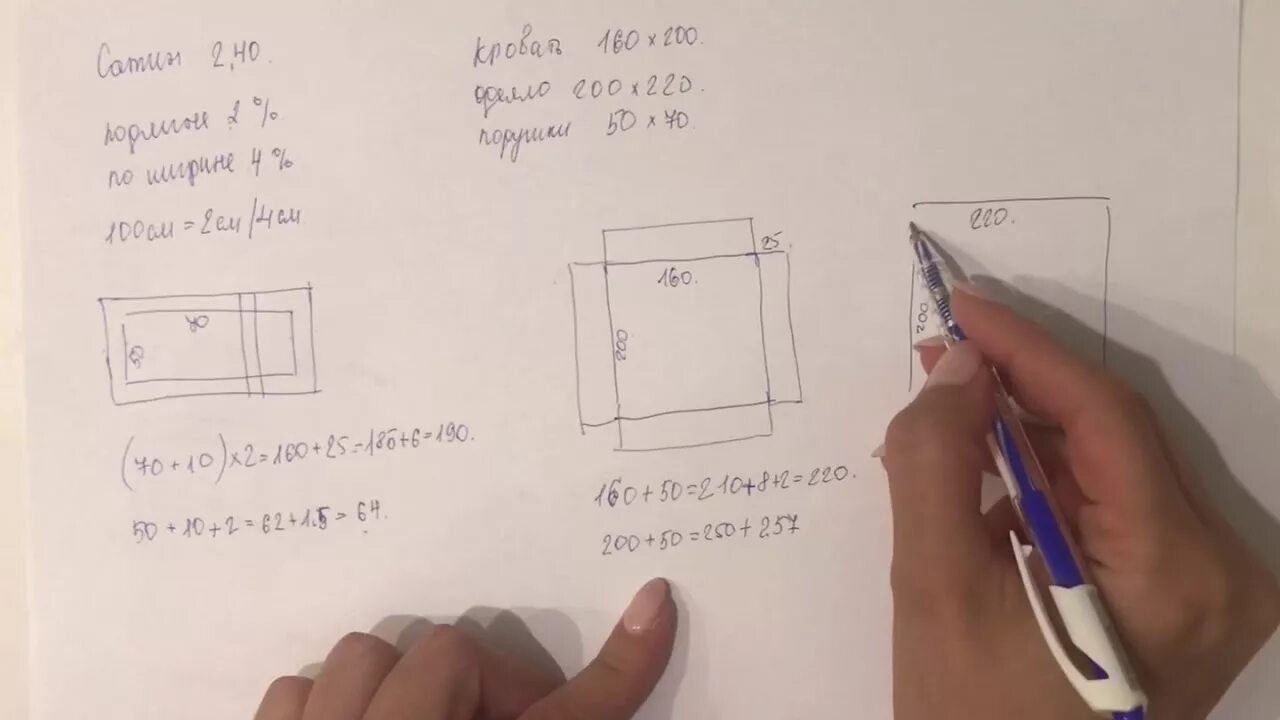 Сатин 2,40.
подлине 2 %
по ширине 4 %
100см = 2см/4см
кровать 160 × 200.
одеяло 200 × 220.
подушки 50 × 70.
70
50
(70 + 10) × 2 = 160 + 25 = 185 + 6 = 190.
50 + 10 + 2 = 62 + 1.5 = 64.
25
160.
200
160 + 50 = 210 + 8 + 2 = 220.
200 + 50 = 250 + 257
220.
200